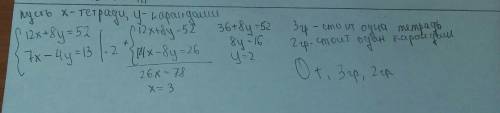 пусть x-тетради, y-карандаши
{12x+8y=52
7x-4y=13 |·2
+ {12x+8y=52
14x-8y=26
26x=78
x=3
36+8y=52
8y=16
y=2
3гр-стоит одна тетрадь
2гр-стоит один карандаш
От, 3гр, 2гр